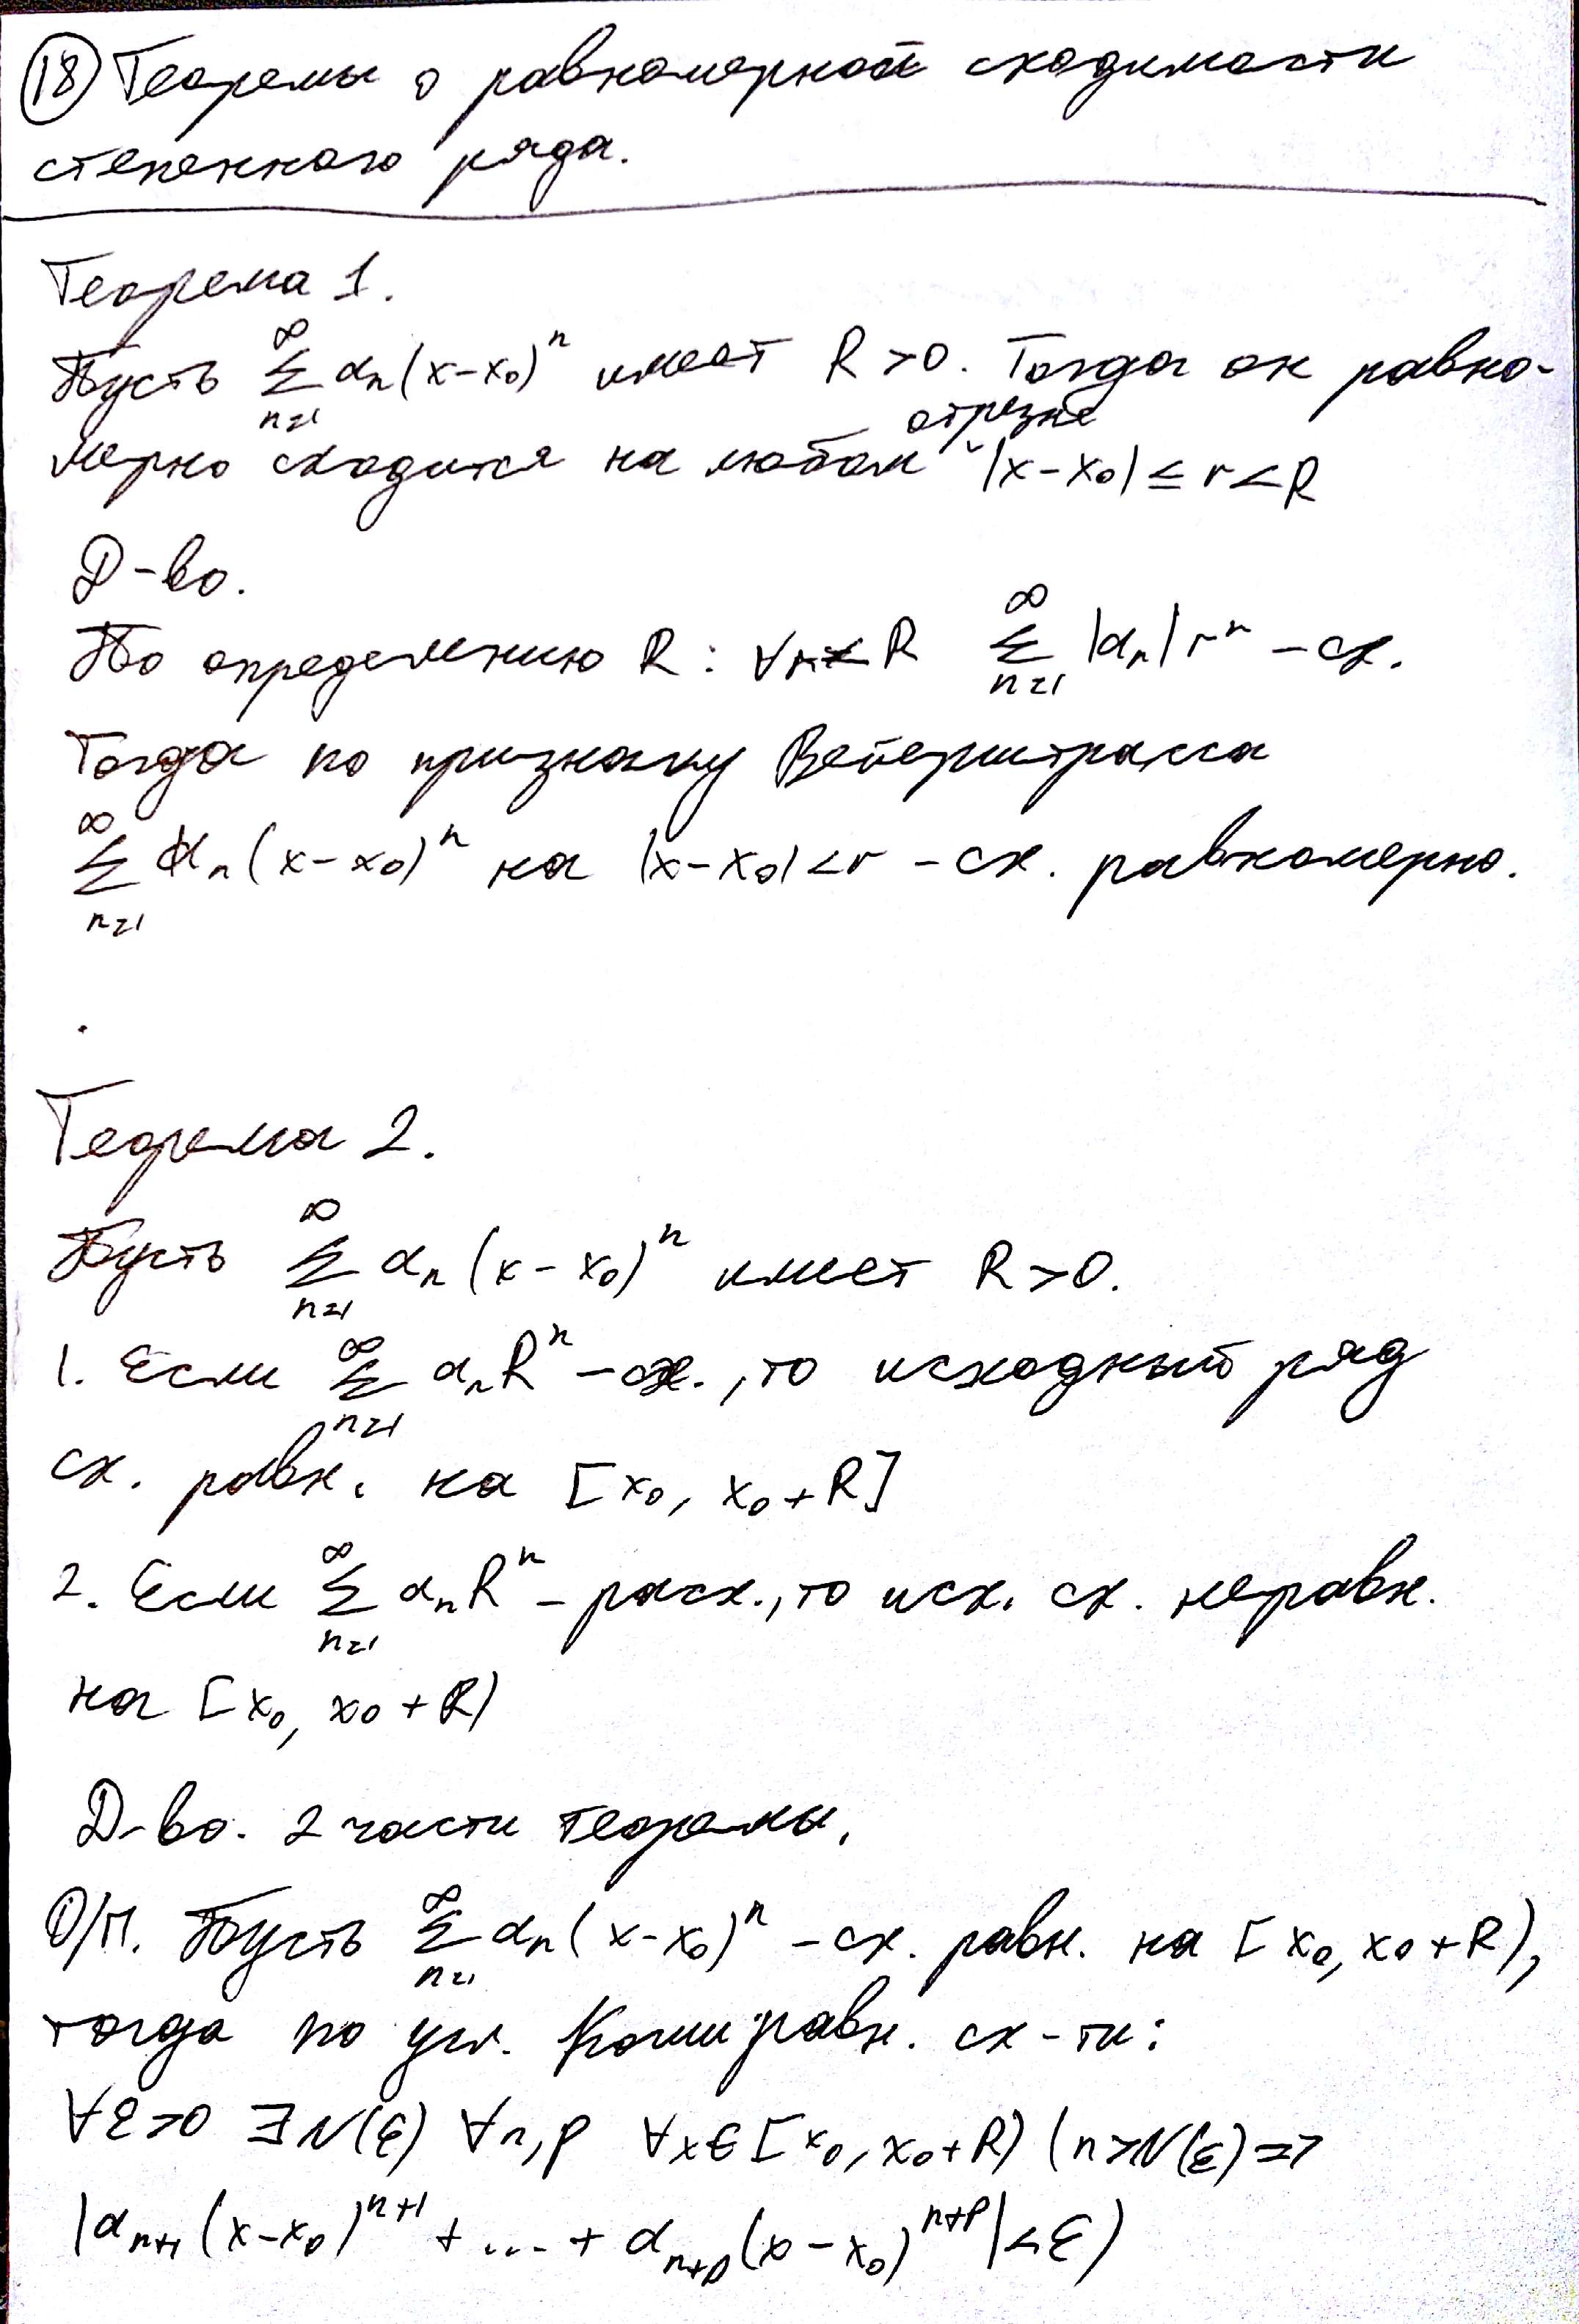 18) Теоремы о равномерной сходимости
степенного ряда.
Теорема 1.
Пусть ∑_{n=1}^{∞} α_n(x-x_0)^n имеет R>0. Тогда он равно-
отрезке
мерно сходится на любом ˇ|x-x_0|≤r<R
Д-во.
По определению R: ∀r<R ∑_{n=1}^{∞} |α_n|r^n - сх.
Тогда по признаку Вейерштрасса
∑_{n=1}^{∞} α_n(x-x_0)^n на |x-x_0|<r - сх. равномерно.
Теорема 2.
Пусть ∑_{n=1}^{∞} α_n(x-x_0)^n имеет R>0.
1. Если ∑_{n=1}^{∞} α_n R^n - сх., то исходный ряд
сх. равн. на [x_0, x_0+R]
2. Если ∑_{n=1}^{∞} α_n R^n - расх., то исх. сх. неравн.
на [x_0, x_0+R)
Д-во. 2 части теоремы.
О/П. Пусть ∑_{n=1}^{∞} α_n(x-x_0)^n - сх. равн. на [x_0, x_0+R),
тогда по усл. Коши равн. сх-ти:
∀ε>0 ∃N(ε) ∀n,p ∀x∈[x_0, x_0+R) (n>N(ε)=>
|α_{n+1}(x-x_0)^{n+1}+...+α_{n+p}(x-x_0)^{n+p}|<ε)